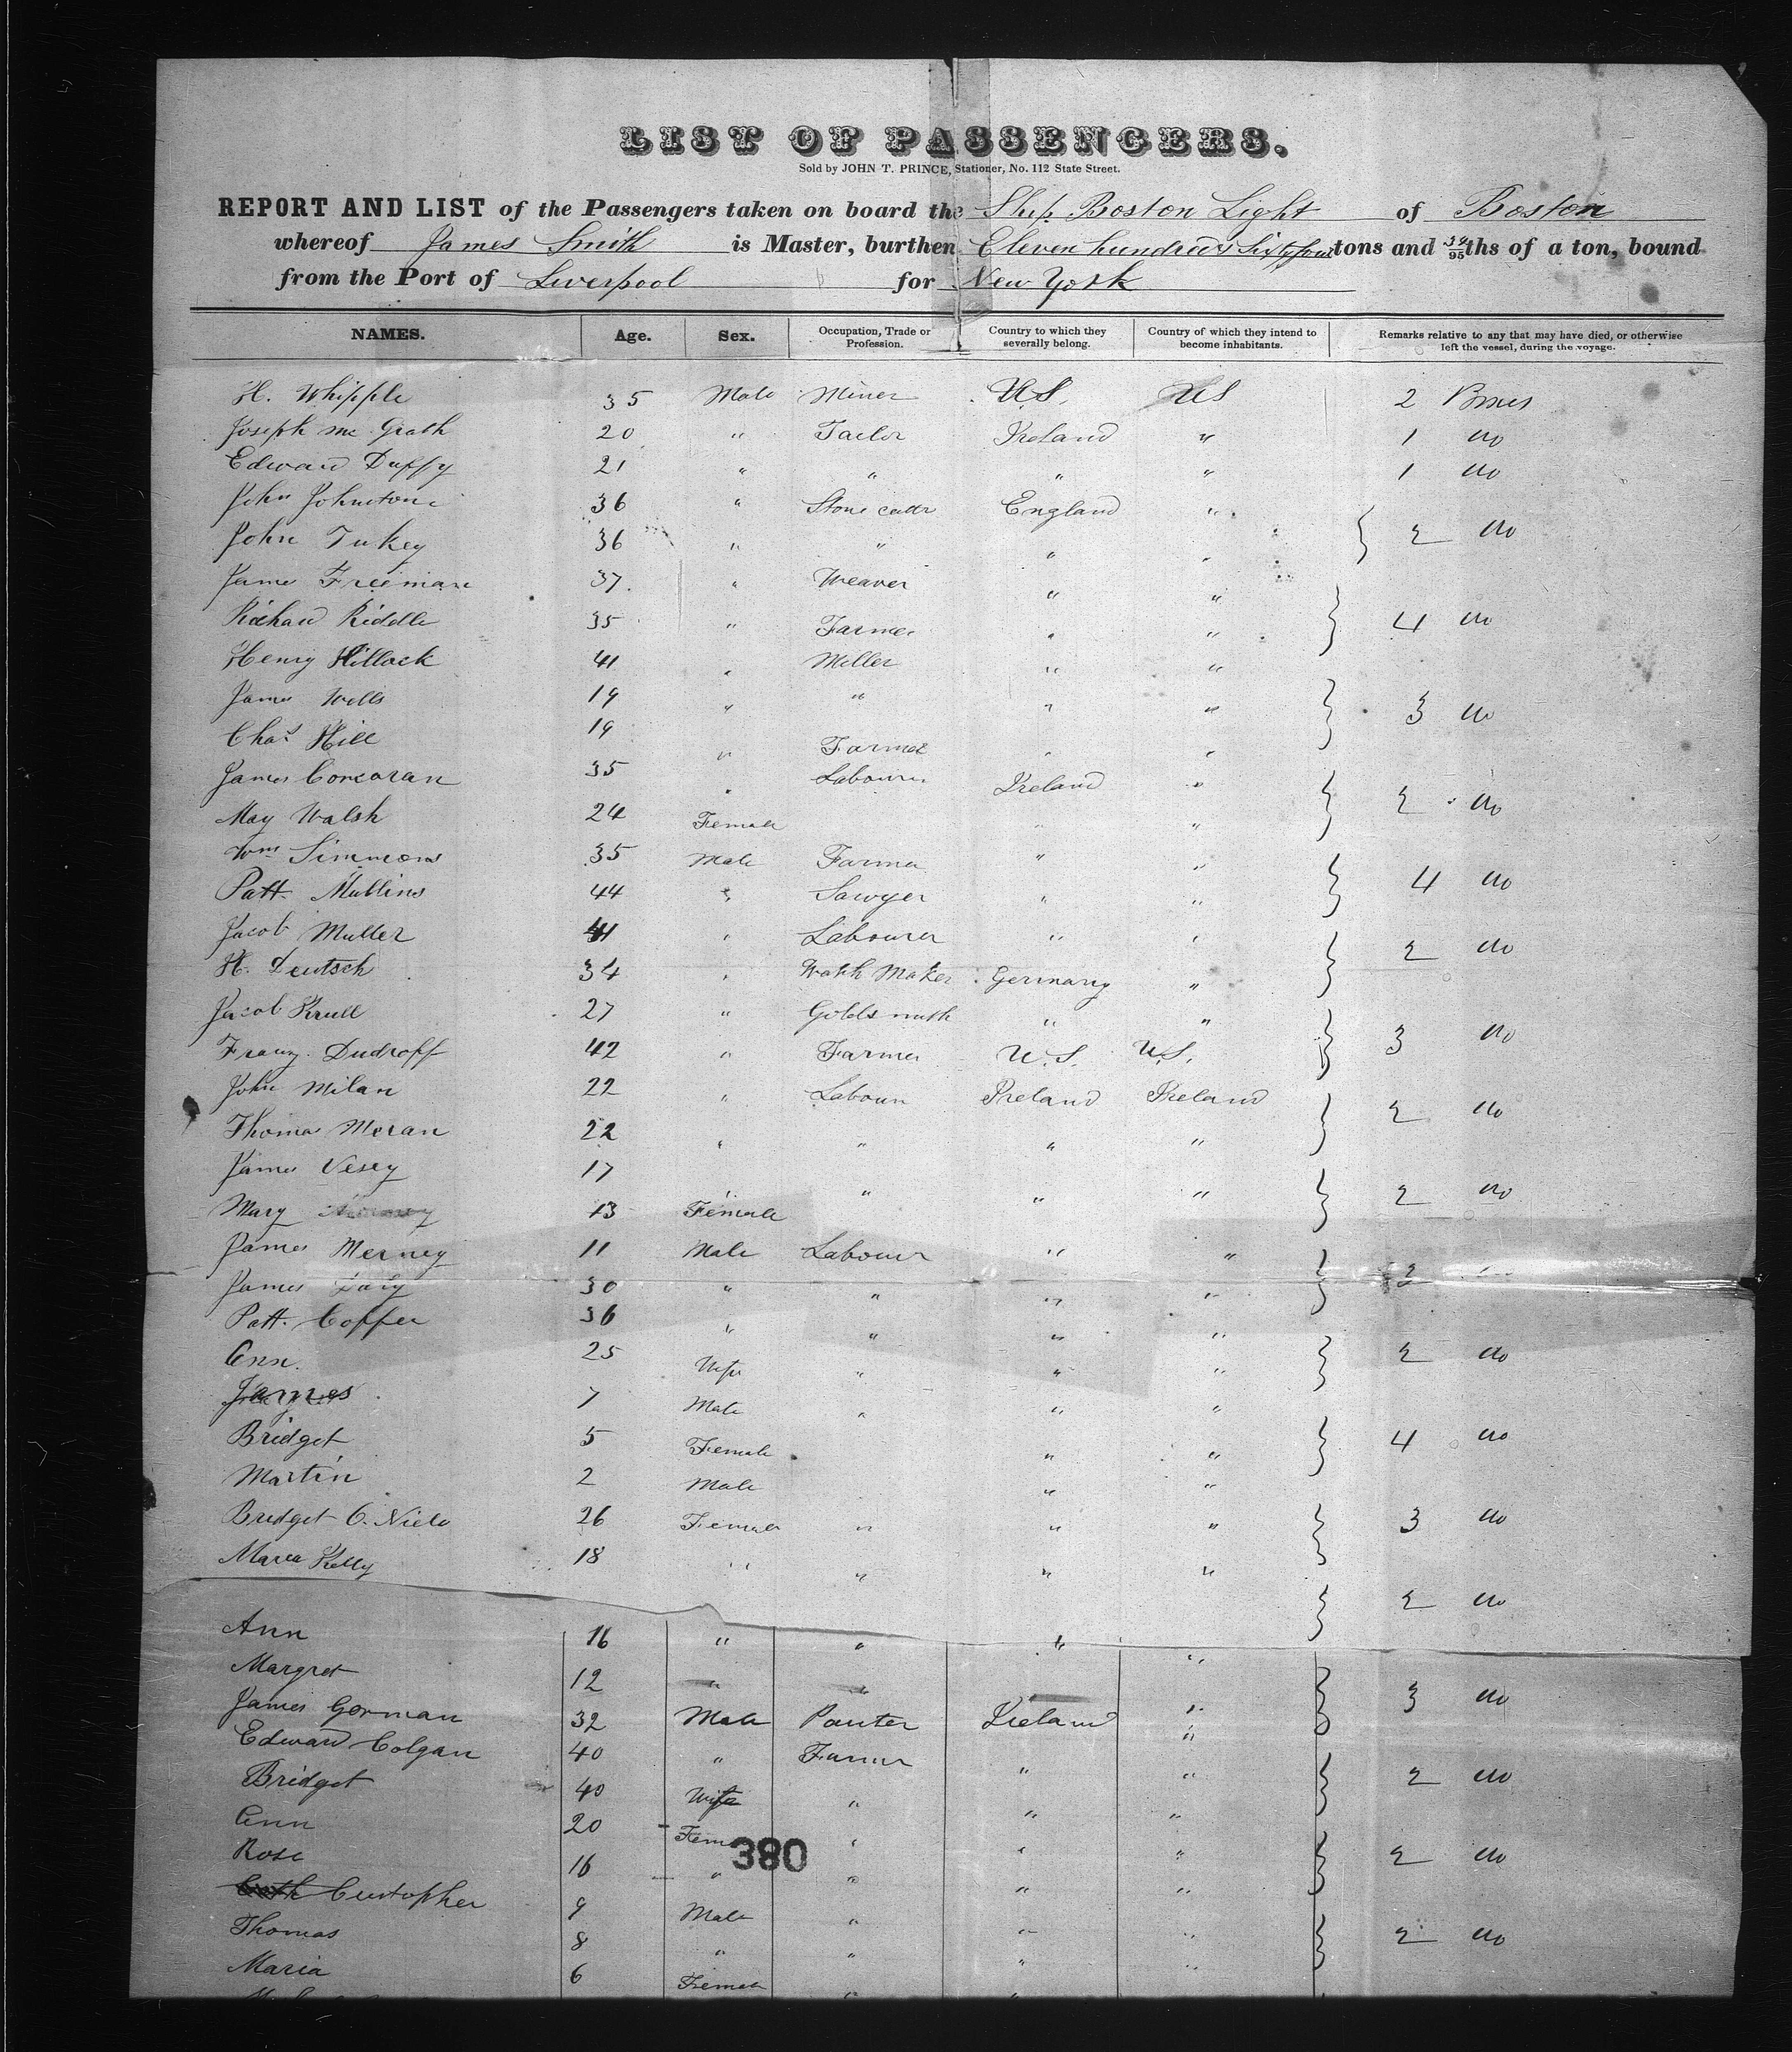 LIST OF PASSENGERS.
Sold by JOHN T. PRINCE, Stationer, No. 112 State Street.
REPORT AND LIST of the Passengers taken on board the Ship Boston Light of Boston
whereof James Smith is Master, burthen Eleven hundred Sixty four tons and 34/95ths of a ton, bound
from the Port of Liverpool for New York
NAMES. Age. Sex. Occupation, Trade or Profession. Country to which they severally belong. Country of which they intend to become inhabitants. Remarks relative to any that may have died, or otherwise left the vessel, during the voyage.
H. Whipple 35 Male Miner U.S. US 2 Boxes
Joseph Mc Grath 20 " Tailor Ireland " 1 do
Edward Duffy 21 " " " " 1 do
John Johnston 36 " Stone cutter England "
John Tukey 36 " " " " } 2 do
James Freeman 37 " Weaver " "
Richard Riddle 35 " Farmer " " } 4 do
Henry Hillock 41 " Miller " "
James Wells 19 " " " " } 3 do
Chas Hill 19 " Farmer " "
James Corcoran 35 " Labourer Ireland " } 2 do
May Walsh 24 Female " "
Wm Simmons 35 Male Farmer " "
Patt Mullins 44 " Sawyer " " } 4 do
Jacob Muller 41 " Labourer " "
H. Deutsch 34 " Watch Maker Germany " } 2 do
Jacob Krull 27 " Goldsmith " "
Franz Dudroff 42 " Farmer U.S. U.S. } 3 do
John Milan 22 " Labour Ireland Ireland
Thomas Meran 22 " " " " } 2 do
James Vesey 17 " " " "
Mary 13 Female } 2 do
James Merney 11 Male Labour " "
James Daly 30 " " " " } 2
Patt. Coffer 36 " " " "
Ann 25 Wife " " " } 2 do
James 7 Male " " "
Bridget 5 Female " " } 4 do
Martin 2 Male " "
Bridget O. Niele 26 Female " " " } 3 do
Maria Kelly 18 " " " "
} 2 do
Ann 16 " " " "
Margret 12 " " } 3 do
James Gorman 32 Male Painter Ireland "
Edward Colgan 40 " Farmer " "
Bridget 40 Wife " " " } 2 do
Ann 20 Fem " " "
380
Rose 16 " " " " } 2 do
Custopher 9 Male " " "
Thomas 8 " " " " } 2 do
Maria 6 Female "